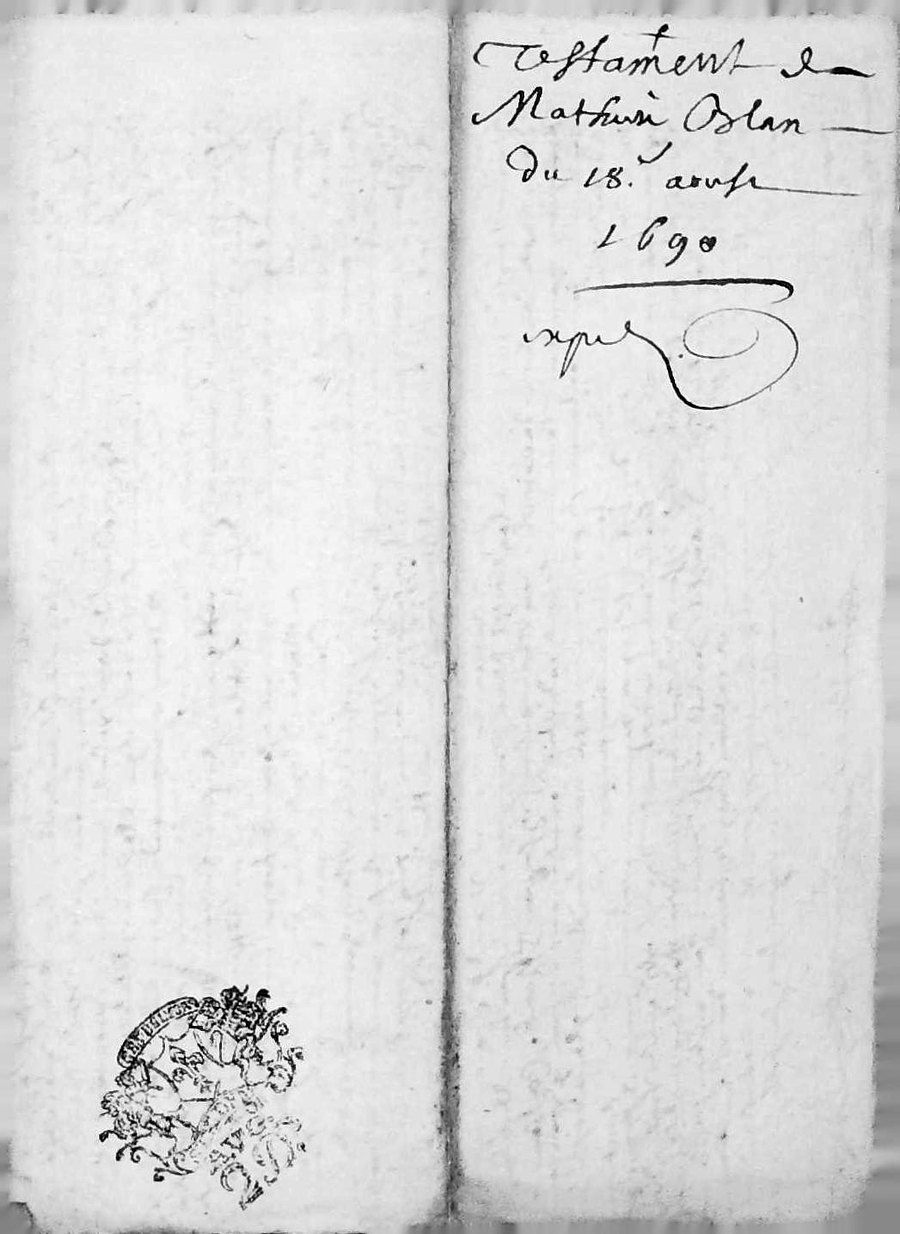 Testament de
Mathurin Blan
Du 18. aoust
1690